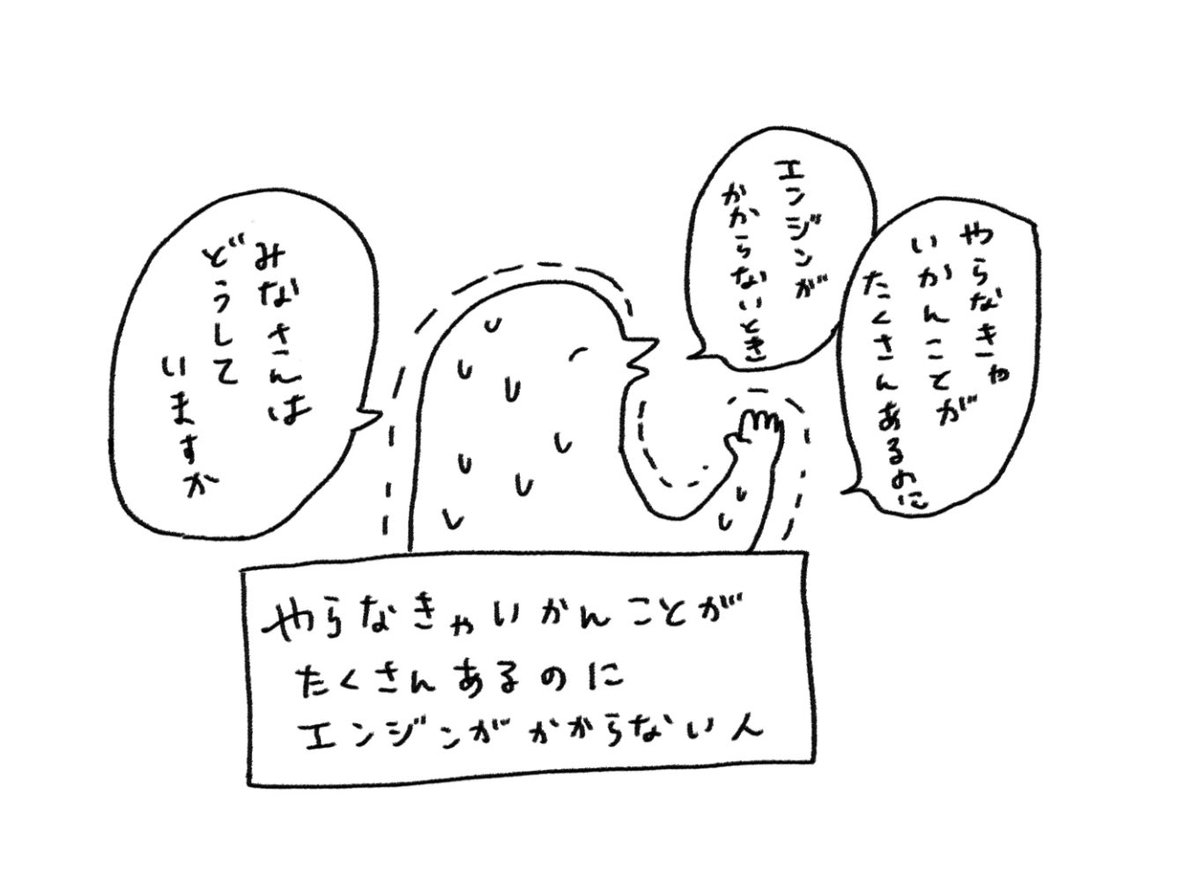 やらなきゃ
いかんことが
たくさんあるのに
エンジンが
かからないとき
みなさんは
どうして
いますか
やらなきゃいかんことが
たくさんあるのに
エンジンがかからない人